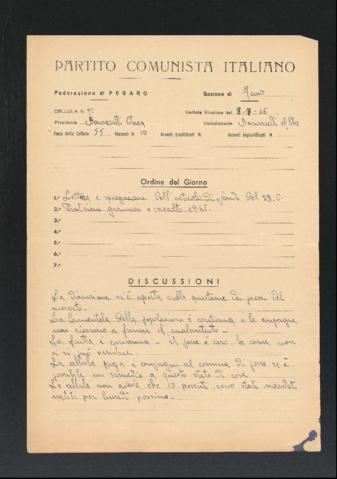 PARTITO COMUNISTA ITALIANO
Federazione di PESARO Sezione di Fano
CELLULA N. 9 Verbale Riunione del 8-7-45
Presiede Verbalizzante
Forza della Cellula 55 Presenti N. 10 Assenti giustificati N. Assenti ingiustificati N.
Ordine del Giorno
1.° Lettura e spiegazione dell'articolo di fondo del 28.6.
2.° e raccolti 1945.
3.°
4.°
5.°
6.°
7.°
DISCUSSIONI
La discussione si è aperta sulla questione dei prezzi del
mercato.
La lamentela della popolazione è continua e le compagne
non riescono a frenare il malcontento -
La frutta è carissima - il pesce è caro la carne non
si può
La cellula prega i compagni al comune di fare se è
possibile un rimedio a questo stato di cose.
La cellula non avendo che 10 presenti sono state mandate
per lunedì prossimo -